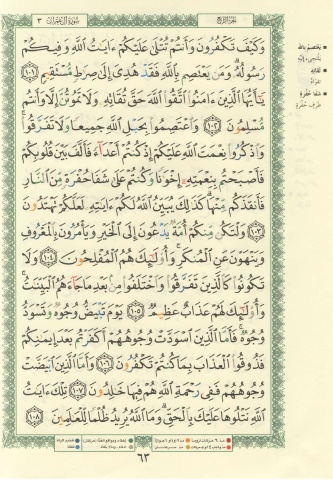 سورة آل عمران ٣
الجزء الرابع
وَكَيْفَ تَكْفُرُونَ وَأَنتُمْ تُتْلَىٰ عَلَيْكُمْ ءَايَٰتُ ٱللَّهِ وَفِيكُمْ
رَسُولُهُۥ ۗ وَمَن يَعْتَصِم بِٱللَّهِ فَقَدْ هُدِىَ إِلَىٰ صِرَٰطٍ مُّسْتَقِيمٍ ١٠١
يَٰٓأَيُّهَا ٱلَّذِينَ ءَامَنُوا۟ ٱتَّقُوا۟ ٱللَّهَ حَقَّ تُقَاتِهِۦ وَلَا تَمُوتُنَّ إِلَّا وَأَنتُم
مُّسْلِمُونَ ١٠٢ وَٱعْتَصِمُوا۟ بِحَبْلِ ٱللَّهِ جَمِيعًا وَلَا تَفَرَّقُوا۟ ۚ
وَٱذْكُرُوا۟ نِعْمَتَ ٱللَّهِ عَلَيْكُمْ إِذْ كُنتُمْ أَعْدَآءً فَأَلَّفَ بَيْنَ قُلُوبِكُمْ
فَأَصْبَحْتُم بِنِعْمَتِهِۦٓ إِخْوَٰنًا وَكُنتُمْ عَلَىٰ شَفَا حُفْرَةٍ مِّنَ ٱلنَّارِ
فَأَنقَذَكُم مِّنْهَا ۗ كَذَٰلِكَ يُبَيِّنُ ٱللَّهُ لَكُمْ ءَايَٰتِهِۦ لَعَلَّكُمْ تَهْتَدُونَ
١٠٣ وَلْتَكُن مِّنكُمْ أُمَّةٌ يَدْعُونَ إِلَى ٱلْخَيْرِ وَيَأْمُرُونَ بِٱلْمَعْرُوفِ
وَيَنْهَوْنَ عَنِ ٱلْمُنكَرِ ۚ وَأُو۟لَٰٓئِكَ هُمُ ٱلْمُفْلِحُونَ ١٠٤ وَلَا
تَكُونُوا۟ كَٱلَّذِينَ تَفَرَّقُوا۟ وَٱخْتَلَفُوا۟ مِنۢ بَعْدِ مَا جَآءَهُمُ ٱلْبَيِّنَٰتُ ۚ
وَأُو۟لَٰٓئِكَ لَهُمْ عَذَابٌ عَظِيمٌ ١٠٥ يَوْمَ تَبْيَضُّ وُجُوهٌ وَتَسْوَدُّ
وُجُوهٌ ۚ فَأَمَّا ٱلَّذِينَ ٱسْوَدَّتْ وُجُوهُهُمْ أَكَفَرْتُم بَعْدَ إِيمَٰنِكُمْ
فَذُوقُوا۟ ٱلْعَذَابَ بِمَا كُنتُمْ تَكْفُرُونَ ١٠٦ وَأَمَّا ٱلَّذِينَ ٱبْيَضَّتْ
وُجُوهُهُمْ فَفِى رَحْمَةِ ٱللَّهِ هُمْ فِيهَا خَٰلِدُونَ ١٠٧ تِلْكَ ءَايَٰتُ
ٱللَّهِ نَتْلُوهَا عَلَيْكَ بِٱلْحَقِّ ۗ وَمَا ٱللَّهُ يُرِيدُ ظُلْمًا لِّلْعَٰلَمِينَ ١٠٨
٦٣
يعتصم بالله
يلتجئ إليه
تقاته
شفا حفرة
طرف حفرة